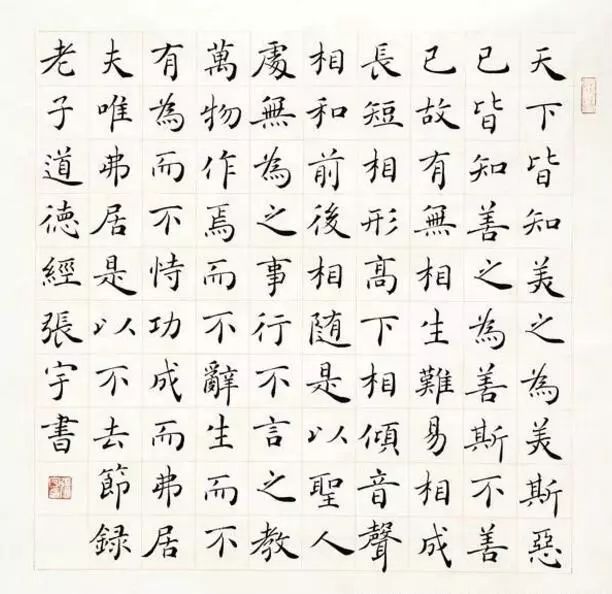 天下皆知美之為美斯惡
已皆知善之為善斯不善
已故有無相生難易相成
長短相形高下相傾音聲
相和前後相随是以聖人
處無為之事行不言之教
萬物作焉而不辭生而不
有為而不恃功成而弗居
夫唯弗居是以不去節録
老子道德經張宇書